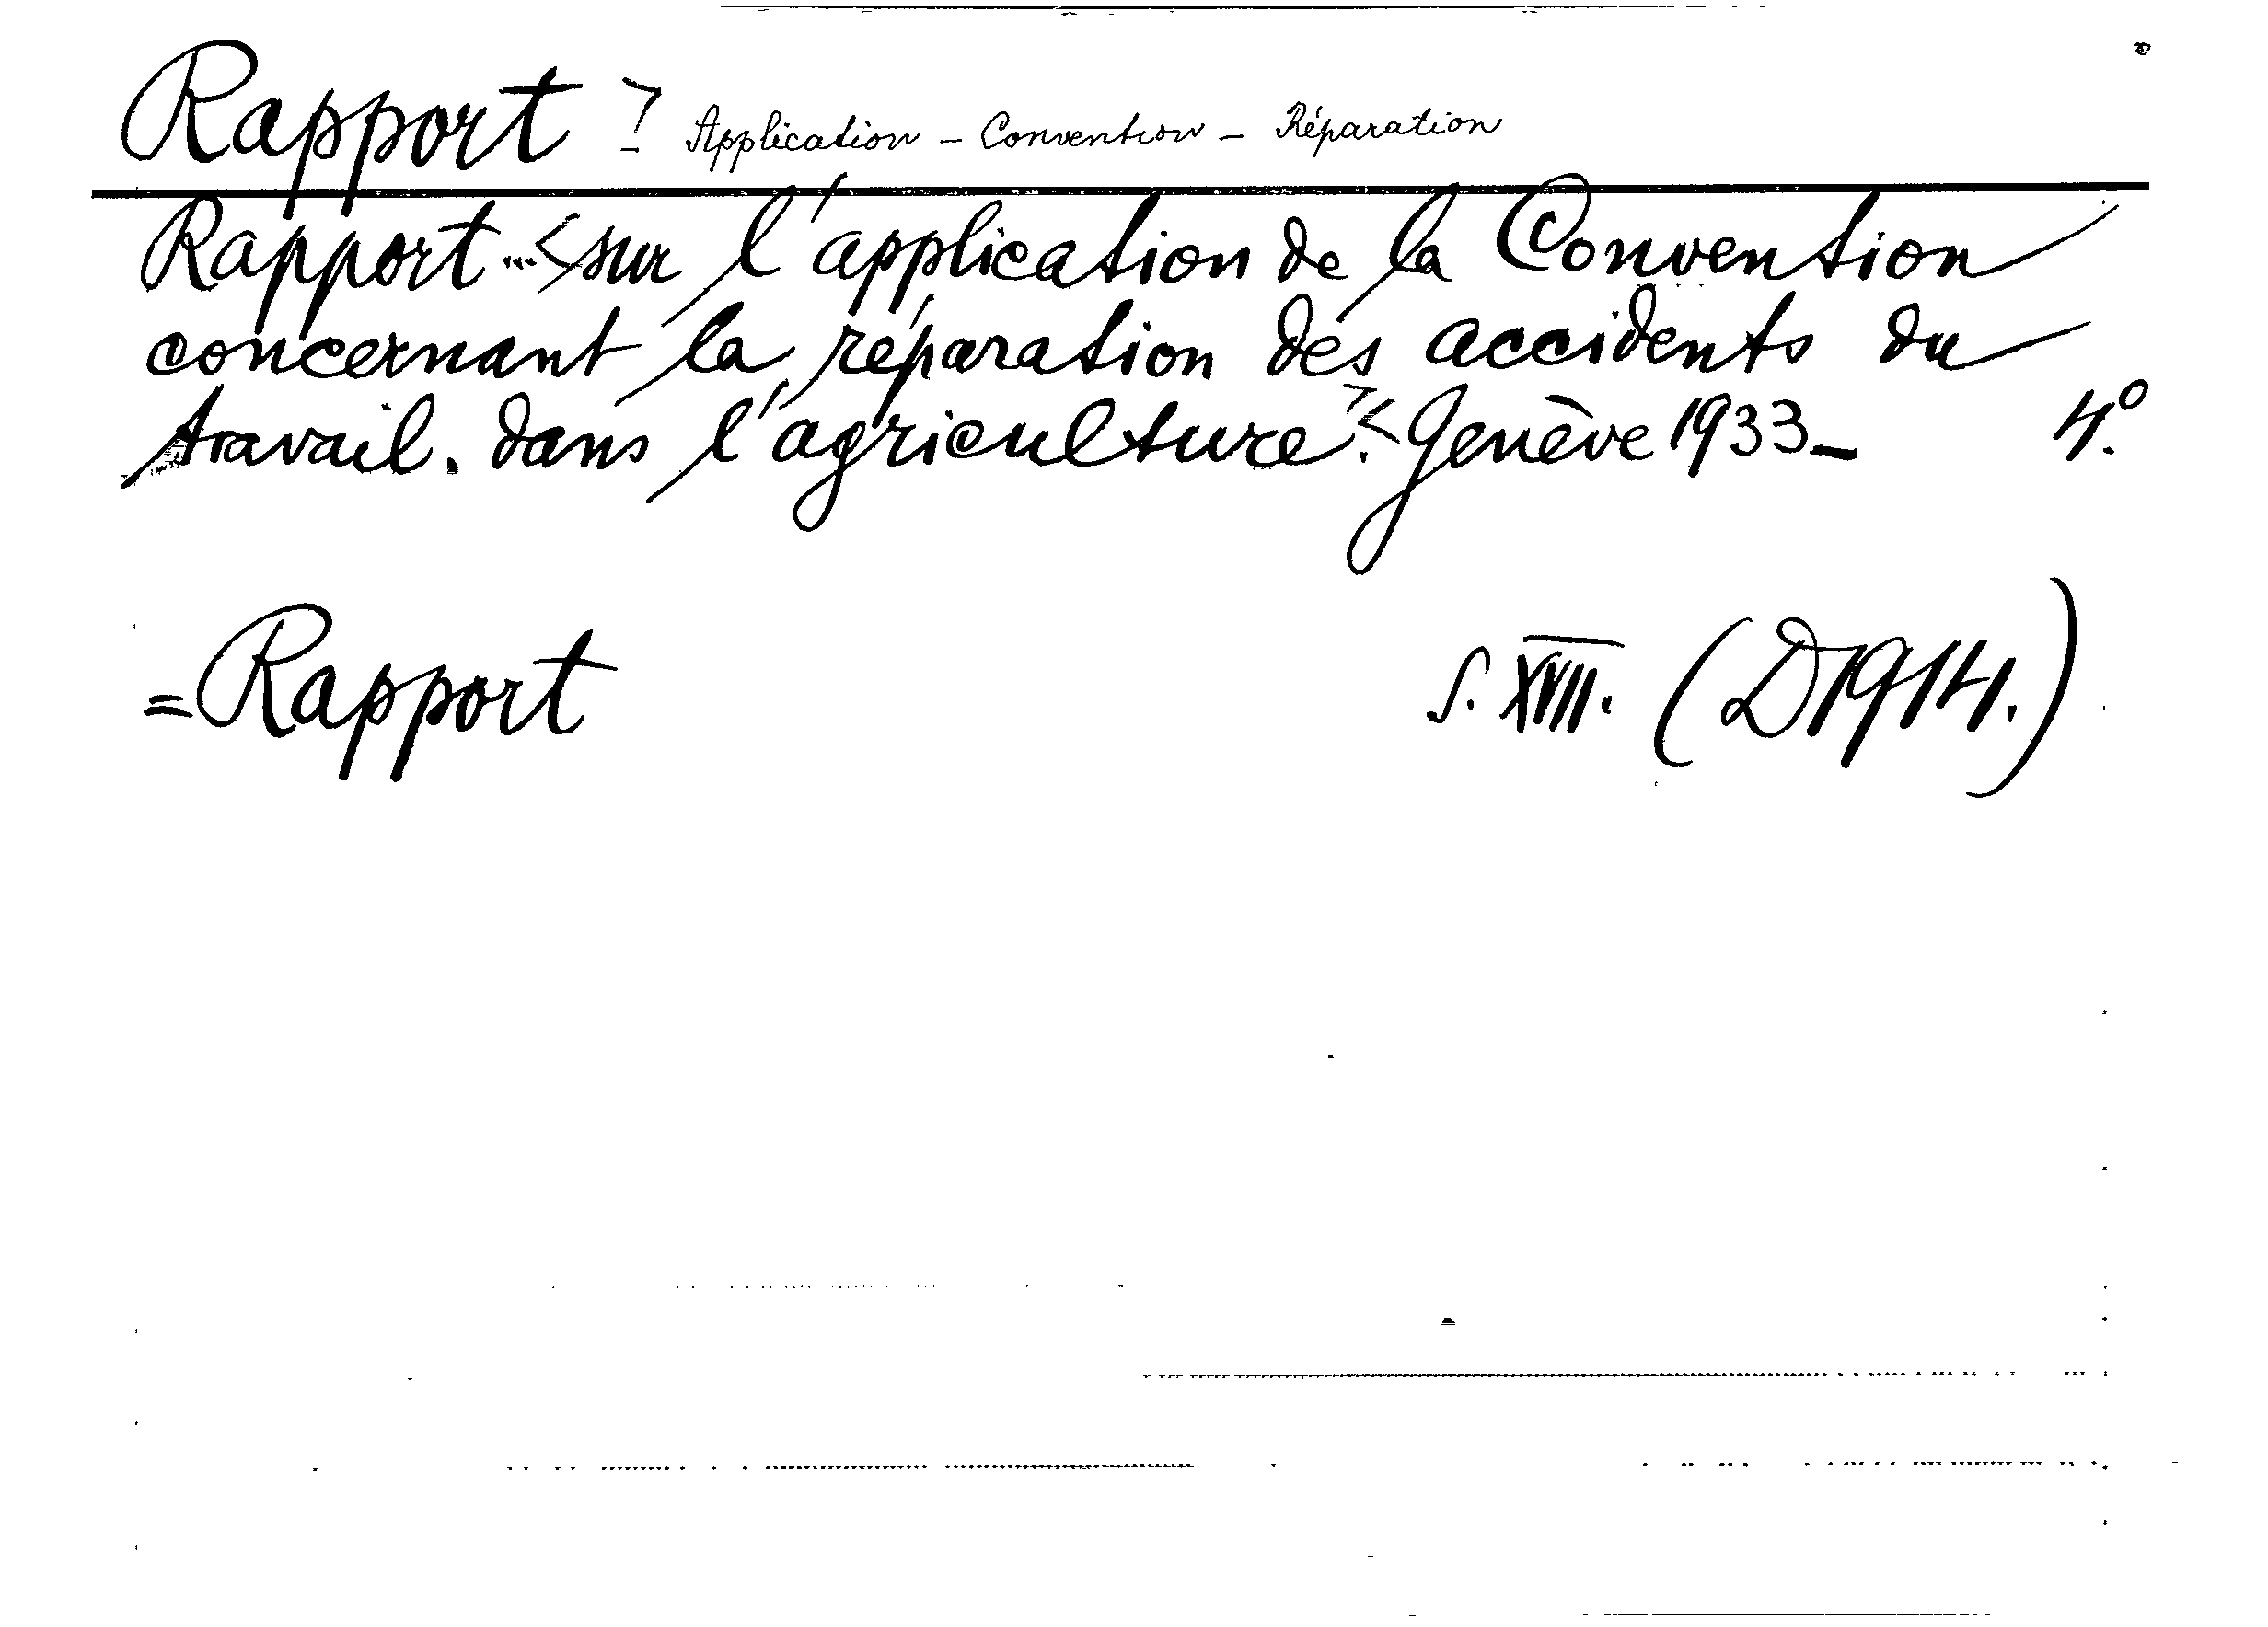 Rapport > Application - Convention - Réparation
Rapport ... < sur l'application de la Convention
concernant la réparation des accidents du
travail. dans l'agriculture. >< Genève 1933_ 4.º
= Rapport S. XVIII. (D1914.)